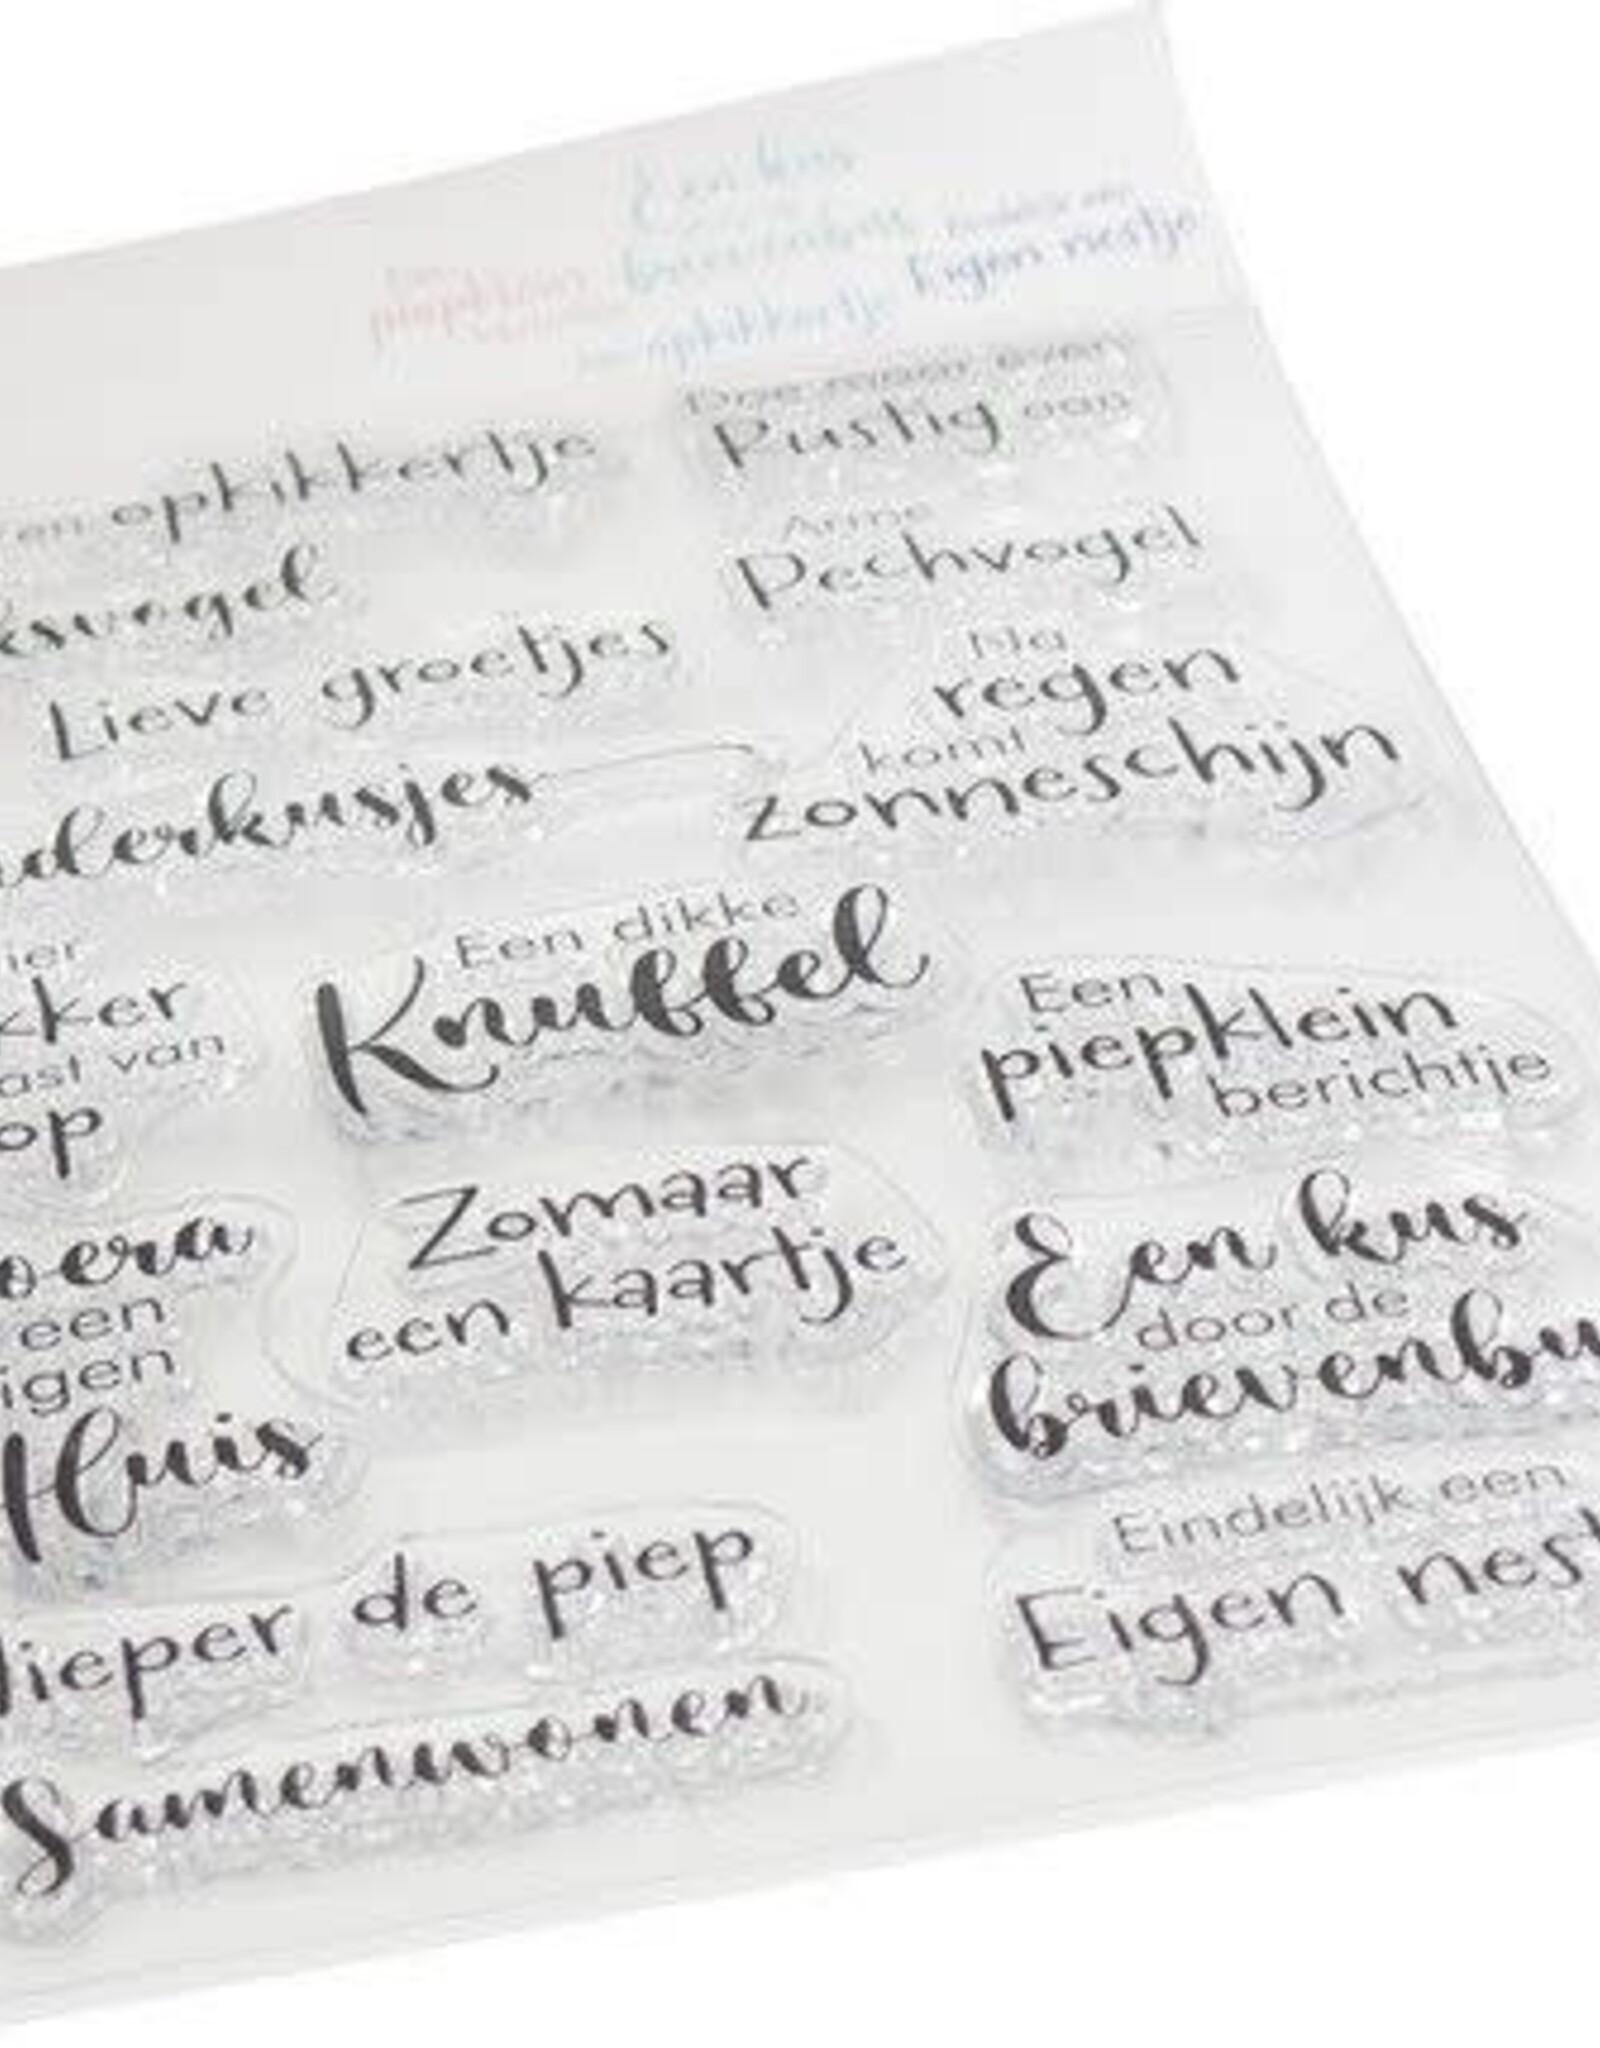 Een kus
Eigen nestje
piepklein
opkikkertje
opkikkertje
Doe maar even
Rustig aan
ksvogel
Arme
Pechvogel
Lieve groetjes
Na
regen
komt
zonneschijn
nderkusjes
Een dikke
Knuffel
ier
kker
ast van
op
Een
piepklein
berichtje
oera
een
igen
Huis
Zomaar
een kaartje
Een kus
door de
brievenbu
Eindelijk een
Eigen nest
ieper de piep
Samenwonen